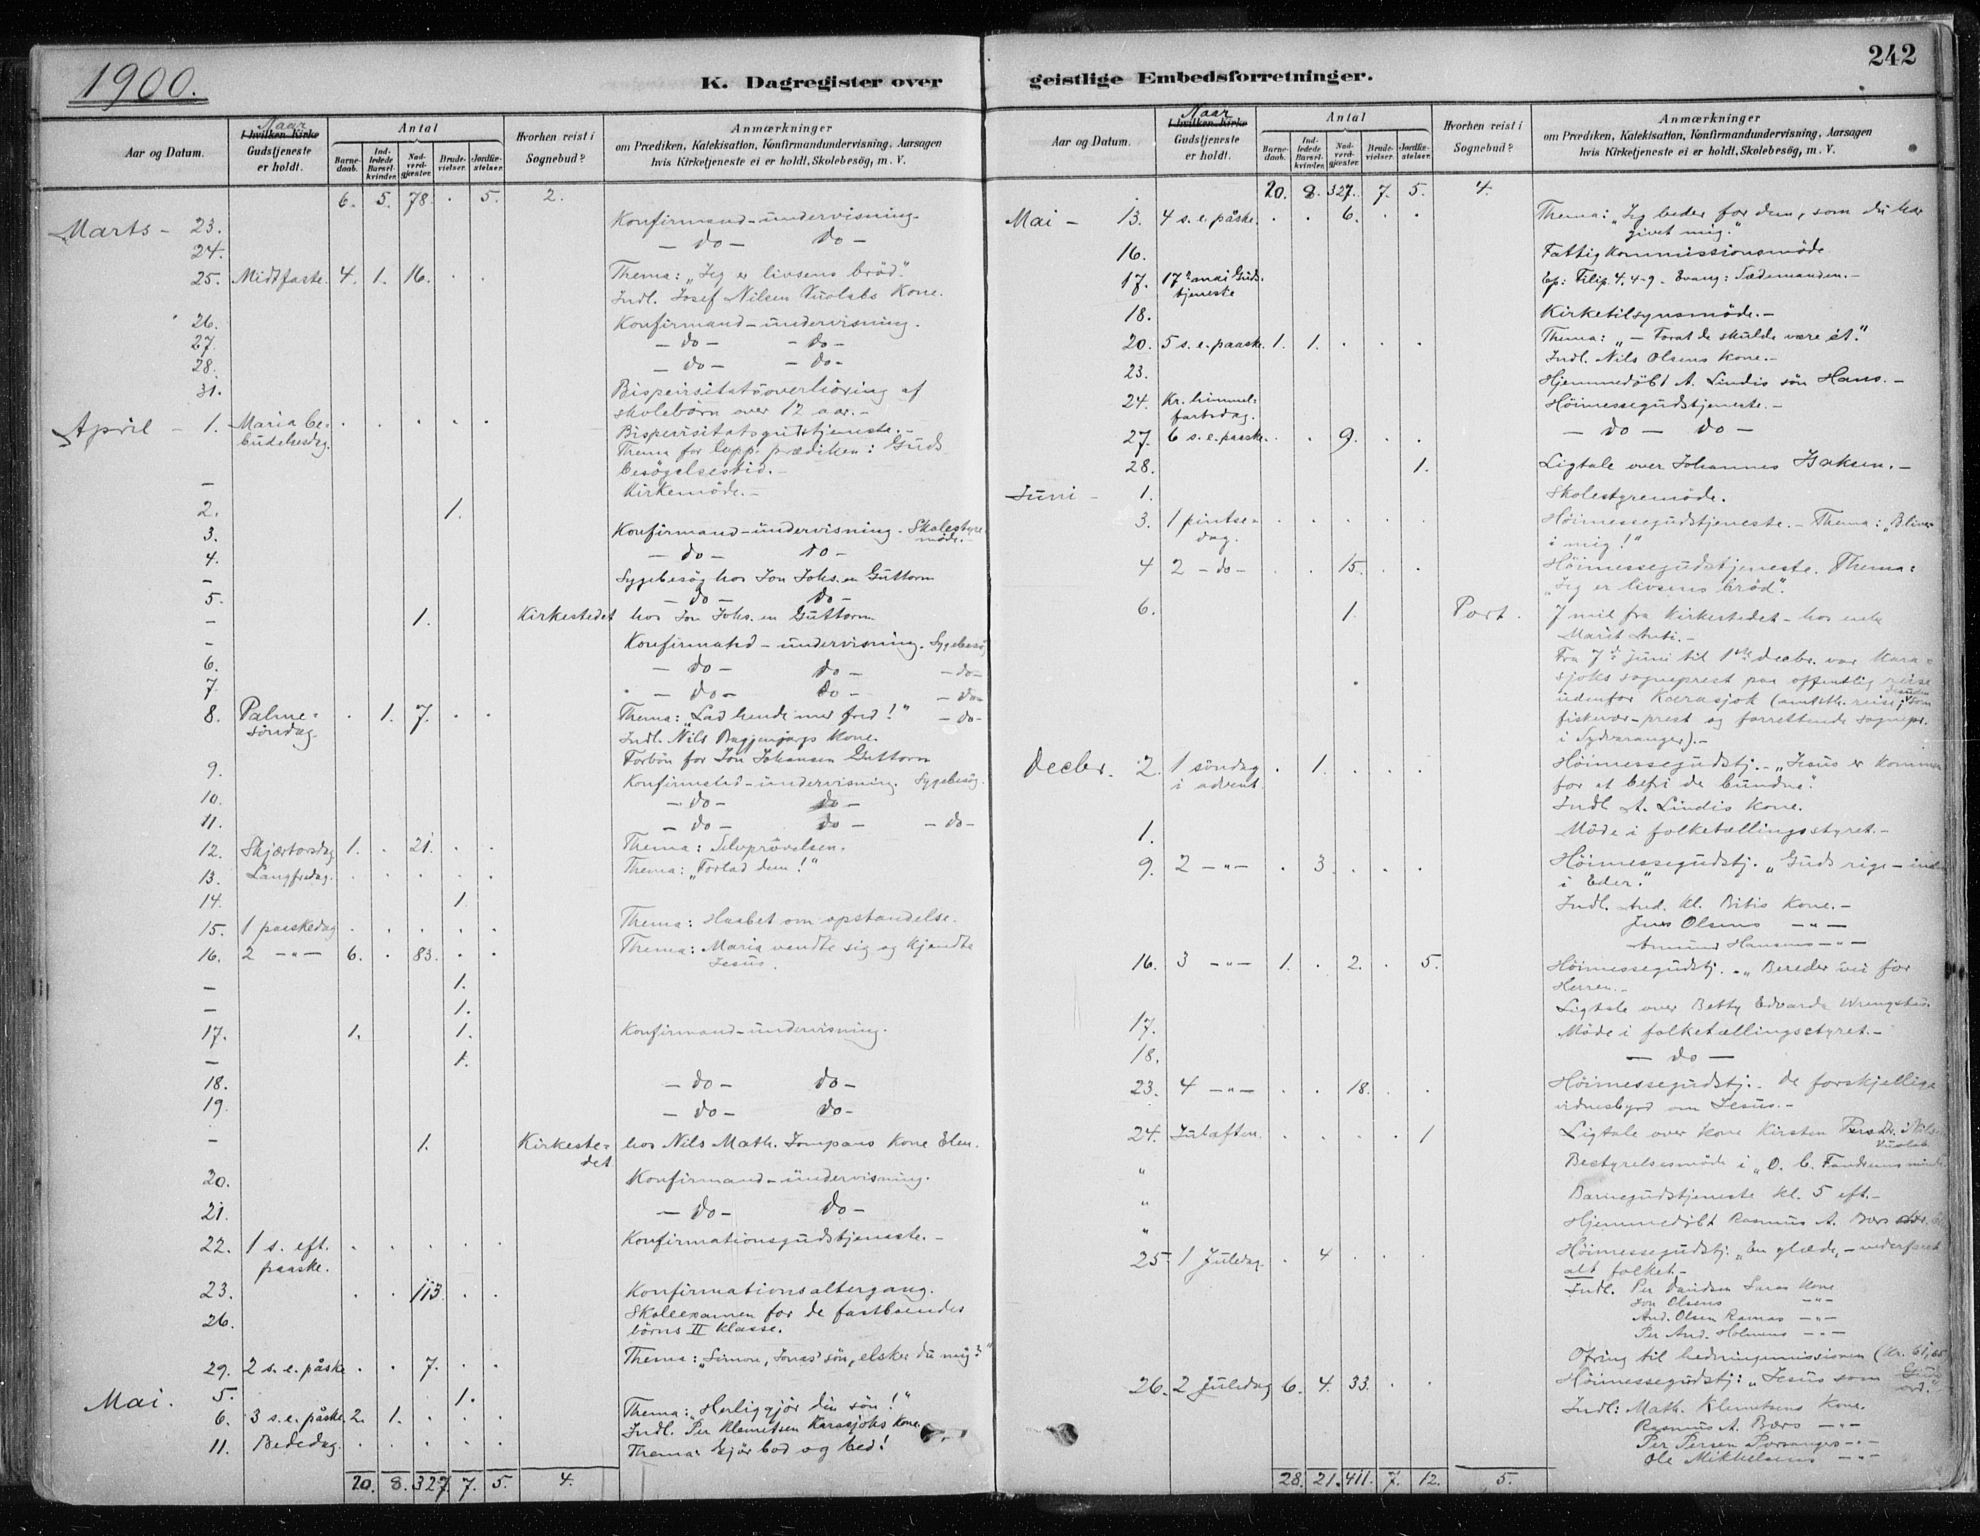 1900.
K. Dagregister over
Aar og Datum.
Naar
I hvilken Kirke
Gudstjeneste
er holdt.
Antal
Barne-
daab.
Ind-
ledede
Barsel-
kvinder.
Nad-
verd-
gjæster.
Brude-
vielser.
Jordfæ-
stelser.
Hvorhen reist i
Sognebud?
Anmærkninger
om Prædiken, Katekisation, Konfirmandundervisning, Aarsagen
hvis Kirketjeneste ei er holdt, Skolebesøg, m. V.
6. 5. 78. . 5. 2.
Marts - 23. Konfirmand-undervisning.
24. - do - do -
25. Midtfaste. 4. 1. 16. . . Thema: "Jeg er livsens brød".
Indl. Josef Nilsen Vuolabs Kone.
26. Konfirmand-undervisning.
27. - do - - do -
28. - do - - do -
31. Bispevisitatsoverhöring af
skolebörn over 12 aar. -
April - 1. Maria be- . . . . . Bispevisitatsgudstjeneste. -
budelsesdag. Thema for Capp. prædiken: Guds
besøgelsestid. -
- Kirkemöde. -
2. 1.
3. Konfirmand-undervisning. Skolestyre-
möde. -
4. - do - do -
- Sygebesög hos Jon Johs.en Guttorm
5. - do - do -
- 1. Kirkestedet hos Jon Johs.en Guttorm
- Konfirmand-undervisning. Sygebesög
6. - do - do - - do -
7. - do - do - - do -
8. Palme- . 1. 7. . . Thema: "Lad hende med fred!" - do -
söndag. Indl. Nils Baggenjargs Kone.
Forbön for Jon Johansen Guttorm
9. Konfirmand-undervisning. Sygebesög.
10. - do - do -
11. - do - do - - do -
12. Skjærtorsdag 1. . 21. . . Thema: Selvprövelsen.
13. Langfredag. . . . . . Thema: "Forlad dem!"
14. 1.
15. 1 paaskedag . . . . . Thema: Haabet om opstandelse.
16. 2 -"- 6. . 83. . . Thema: Maria vendte sig og kjendte
Jesus.
- 1.
- 1.
17. 1. 1. Konfirmand-undervisning.
- 1.
18. - do - do -
19. - do - do -
- 1. Kirkeste-
det hos Nils Math. Jompans Kone Elen.
20. Konfirmand-undervisning.
21. - do - do -
22. 1 s. eft. . . . . . Konfirmationsgudstjeneste. -
paaske.
23. . . 113. . . Konfirmationsaltergang.
26. Skoleexamen for de fastboendes
börns II klasse.
29. 2 s. e. påske . . 7. . . Thema: "Simon, Jonas' sön, elsker du mig?"
Mai. 5. 1.
6. 3 s. e. påske. 2. 1. . . . Thema: "Herliggjör din sön!"
Indl. Per Klemetsen Karasjoks Kone.
11. Bededag. . . . . . Thema: Gjör bod og bed!
20. 8. 327. 7. 5. 4.
geistlige Embedsforretninger.
242
Aar og Datum.
Naar
I hvilken Kirke
Gudstjeneste
er holdt.
Antal
Barne-
daab.
Ind-
ledede
Barsel-
kvinder.
Nad-
verd-
gjæster.
Brude-
vielser.
Jordfæ-
stelser.
Hvorhen reist i
Sognebud?
Anmærkninger
om Prædiken, Katekisation, Konfirmandundervisning, Aarsagen
hvis Kirketjeneste ei er holdt, Skolebesøg, m. V.
20. 8. 327. 7. 5. 4.
Mai - 13. 4 s. e. påske. . . 6. . . Thema: "Jeg beder for dem, som du har
givet mig."
16. Fattigkommissionsmöde
17. 17de mai Guds- Ep: Filip. 4. 4-9. Evang: Sædemanden. -
tjeneste
18. Kirketilsynsmöde. -
20. 5 s. e. paaske. 1. 1. . . . Thema: "- Forat de skulde være ét."
Indl. Nils Olsens Kone. -
23. Hjemmedöbt A. Lindis sön Hans. -
24. Kr. himmel- Höimessegudstjeneste. -
fartsdag.
27. 6 s. e. paaske. . . 9. . . - do - do -
28. 1. Ligtale over Johannes Isaksen. -
Juni - 1. Skolestyremöde.
3. 1 pintse- . . . . . Höimessegudstjeneste. - Thema: "Bliver
dag. i mig!"
4 2 - do - . . 15. . . Höimessegudstjeneste. Thema:
"Jeg er livsens bröd".
6. 1. Port. 7 mil fra Kirkestedet - hos enke
Marit Anti. -
Fra 7de juni til 1ste decbr. var Kara-
sjoks sogneprest paa offentlig reise
udenfor Karasjok (amtsth. reise; desuden som
fiskevær-prest og forrettende sognepr.
i Sydvaranger). -
Decbr. 2. 1 söndag . 1. . . . Höimessegudstj. - "Jesus er kommen
i advent. for at befri de bundne".
Indl A. Lindis Kone.
1. Möde i folketællingsstyret. -
9. 2 -"- . 3. . . . Höimessegudstj. "Guds rige - inden
i Eder."
Indl. And. Kl. Bitis Kone. -
Jens Olsens -"-
Amund Hansens -"-
16. 3 -"- 1. . 2. . 5. Höimessegudstj. - "Bereder vei for
Herren. -
Ligtale over Betty Edvarda
17. Möde i folketællingsstyret. -
18. - do -
23. 4 -"- . . 18. . . Höimessegudstj. - de forskjellige
vidnesbyrd om Jesus. -
24. Julaften. . . . . 1 Ligtale over Kone Kirsten Persdr. Nils
Vuolab.
" Bestyrelsesmöde i "O. C. Fandrems minde
" Barnegudstjeneste kl. 5 eft. -
" Hjemmedöbt Rasmus A. Bærs
25. 1 Juledag. . 4 . . . Höimessegudstj. "En glæde, - vederfaret
alt folket. -
Indl. Per Davidsen Saras Kone
Jon Olsens -"-
And. Olsen Ravnas -"-
Per And. Holmens -"-
Ofring til hedningemissionen (kr. 61,65
26. 2 Juledag 6. 4. 33. . . Höimessegudstj: "Jesus som Guds
ord."
Indl: Math. Klemetsens Kone.
Rasmus A. Bærs -"-
Per Persen Porsangers -"-
Ole Mikkelsens -"-
28. 21. 411. 7. 12. 5.